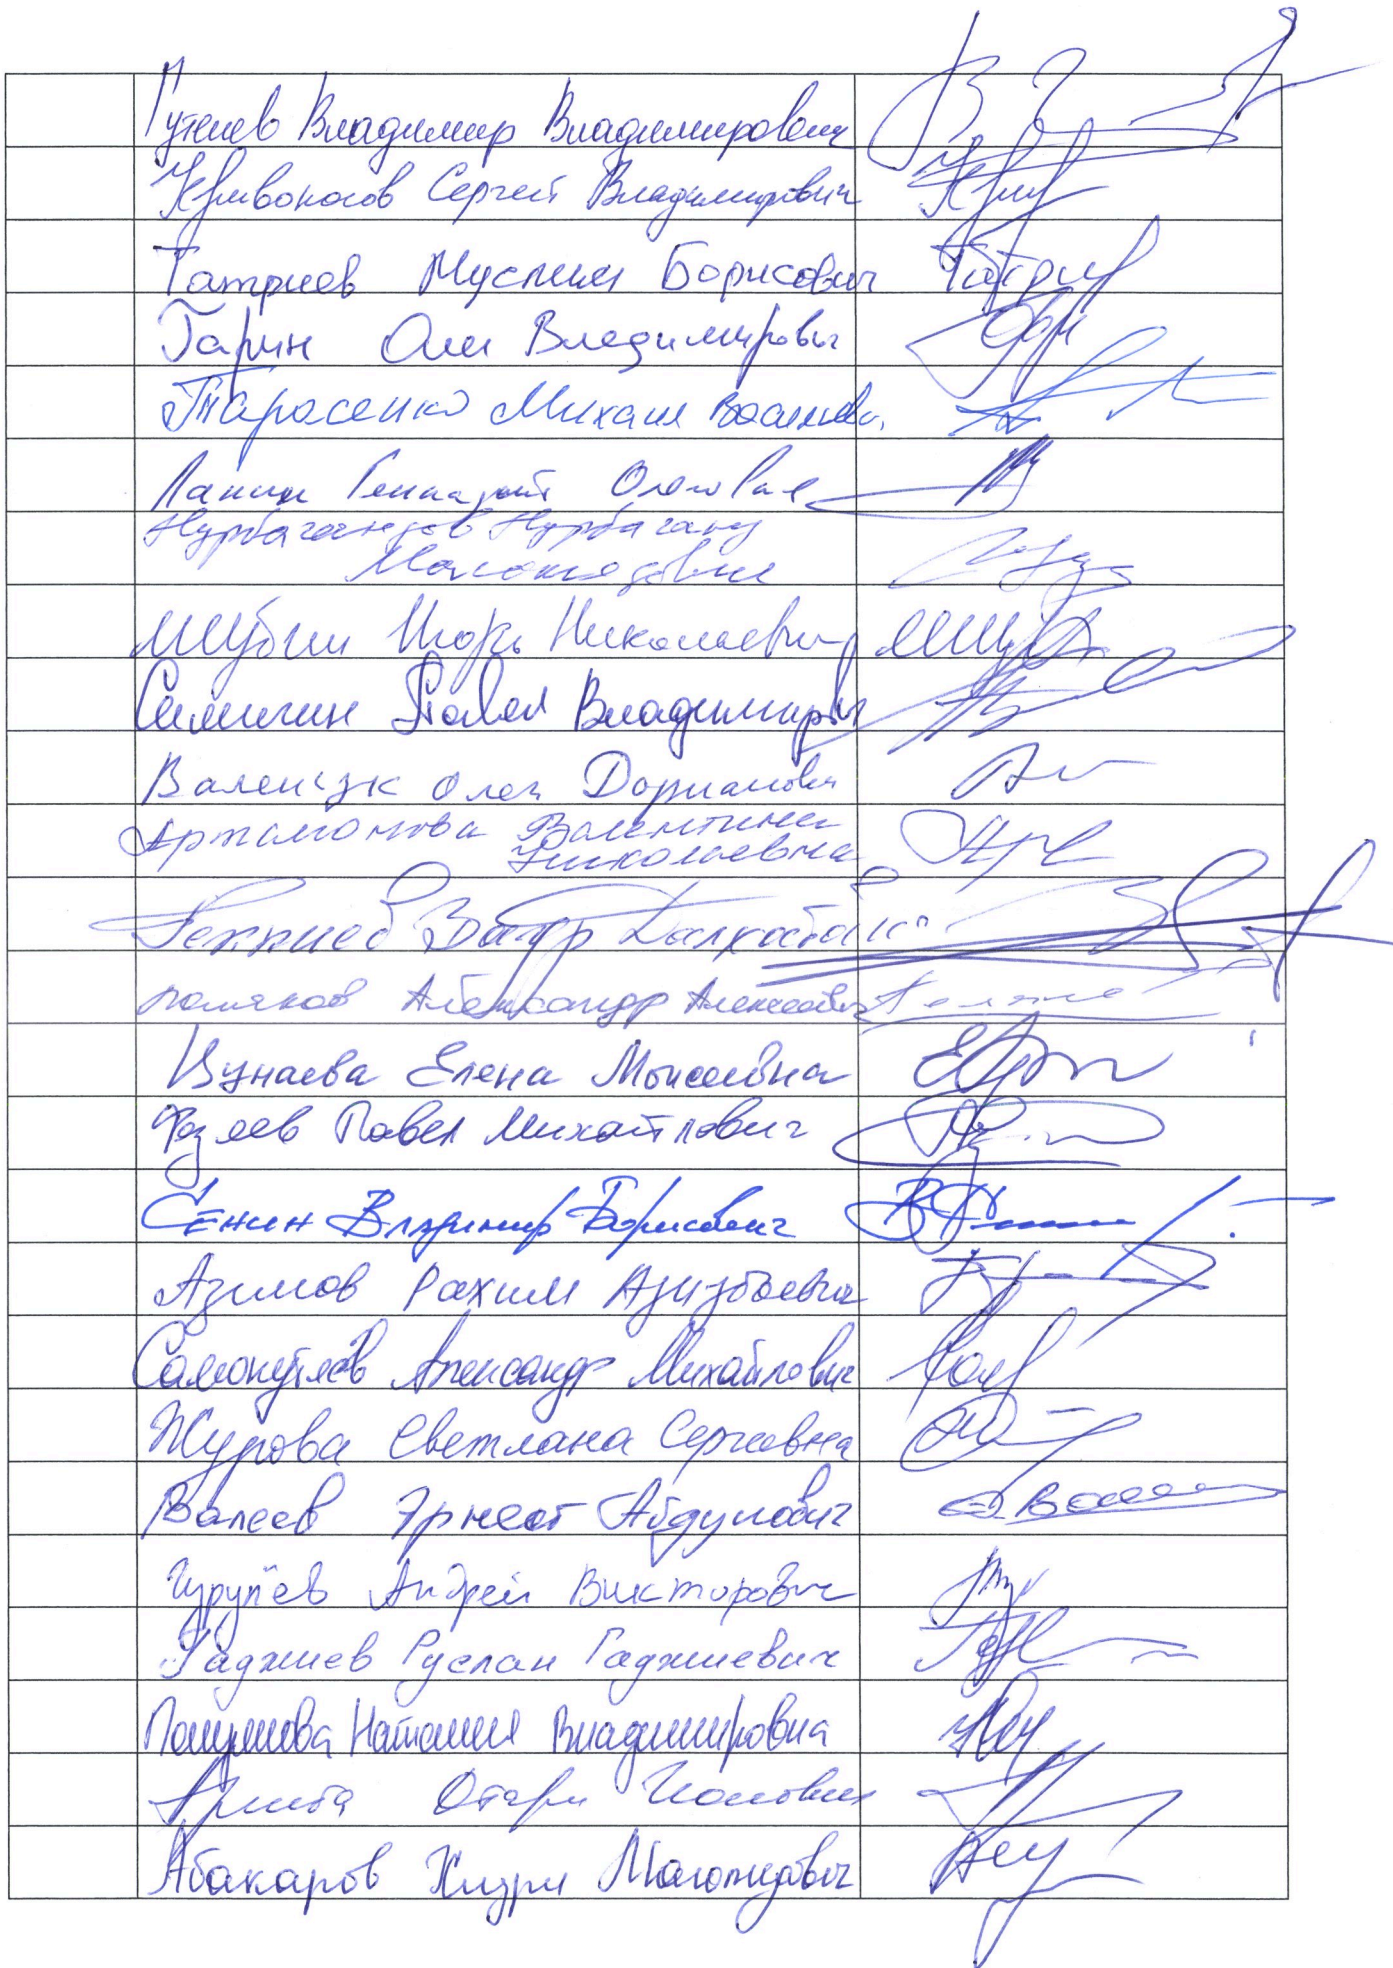 Гутенев Владимир Владимирович
Кривоносов Сергей Владимирович
Татриев Муслим Борисович
Гарин Олег Владимирович
Тарасенко Михаил Васильевич
Панин Геннадий Олегович
Нурбагандов Нурбаганд
Магомедович
Шубин Игорь Николаевич
Симигин Павел Владимирович
Валенчук Олег Дорианович
Артамонова Валентина
Николаевна
Геккиев Заур Далхатович
Поляков Александр Алексеевич
Цунаева Елена Моисеевна
Федяев Павел Михайлович
Сенин Владимир Борисович
Азимов Рахим Азизбоевич
Самокутяев Александр Михайлович
Журова Светлана Сергеевна
Валеев Эрнест Абдулович
Чурупiев Андрей Викторович
Гаджиев Руслан Гаджиевич
Полуянова Наталия Владимировна
Аршба Отари Ионович
Абакаров Хизри Магомедович